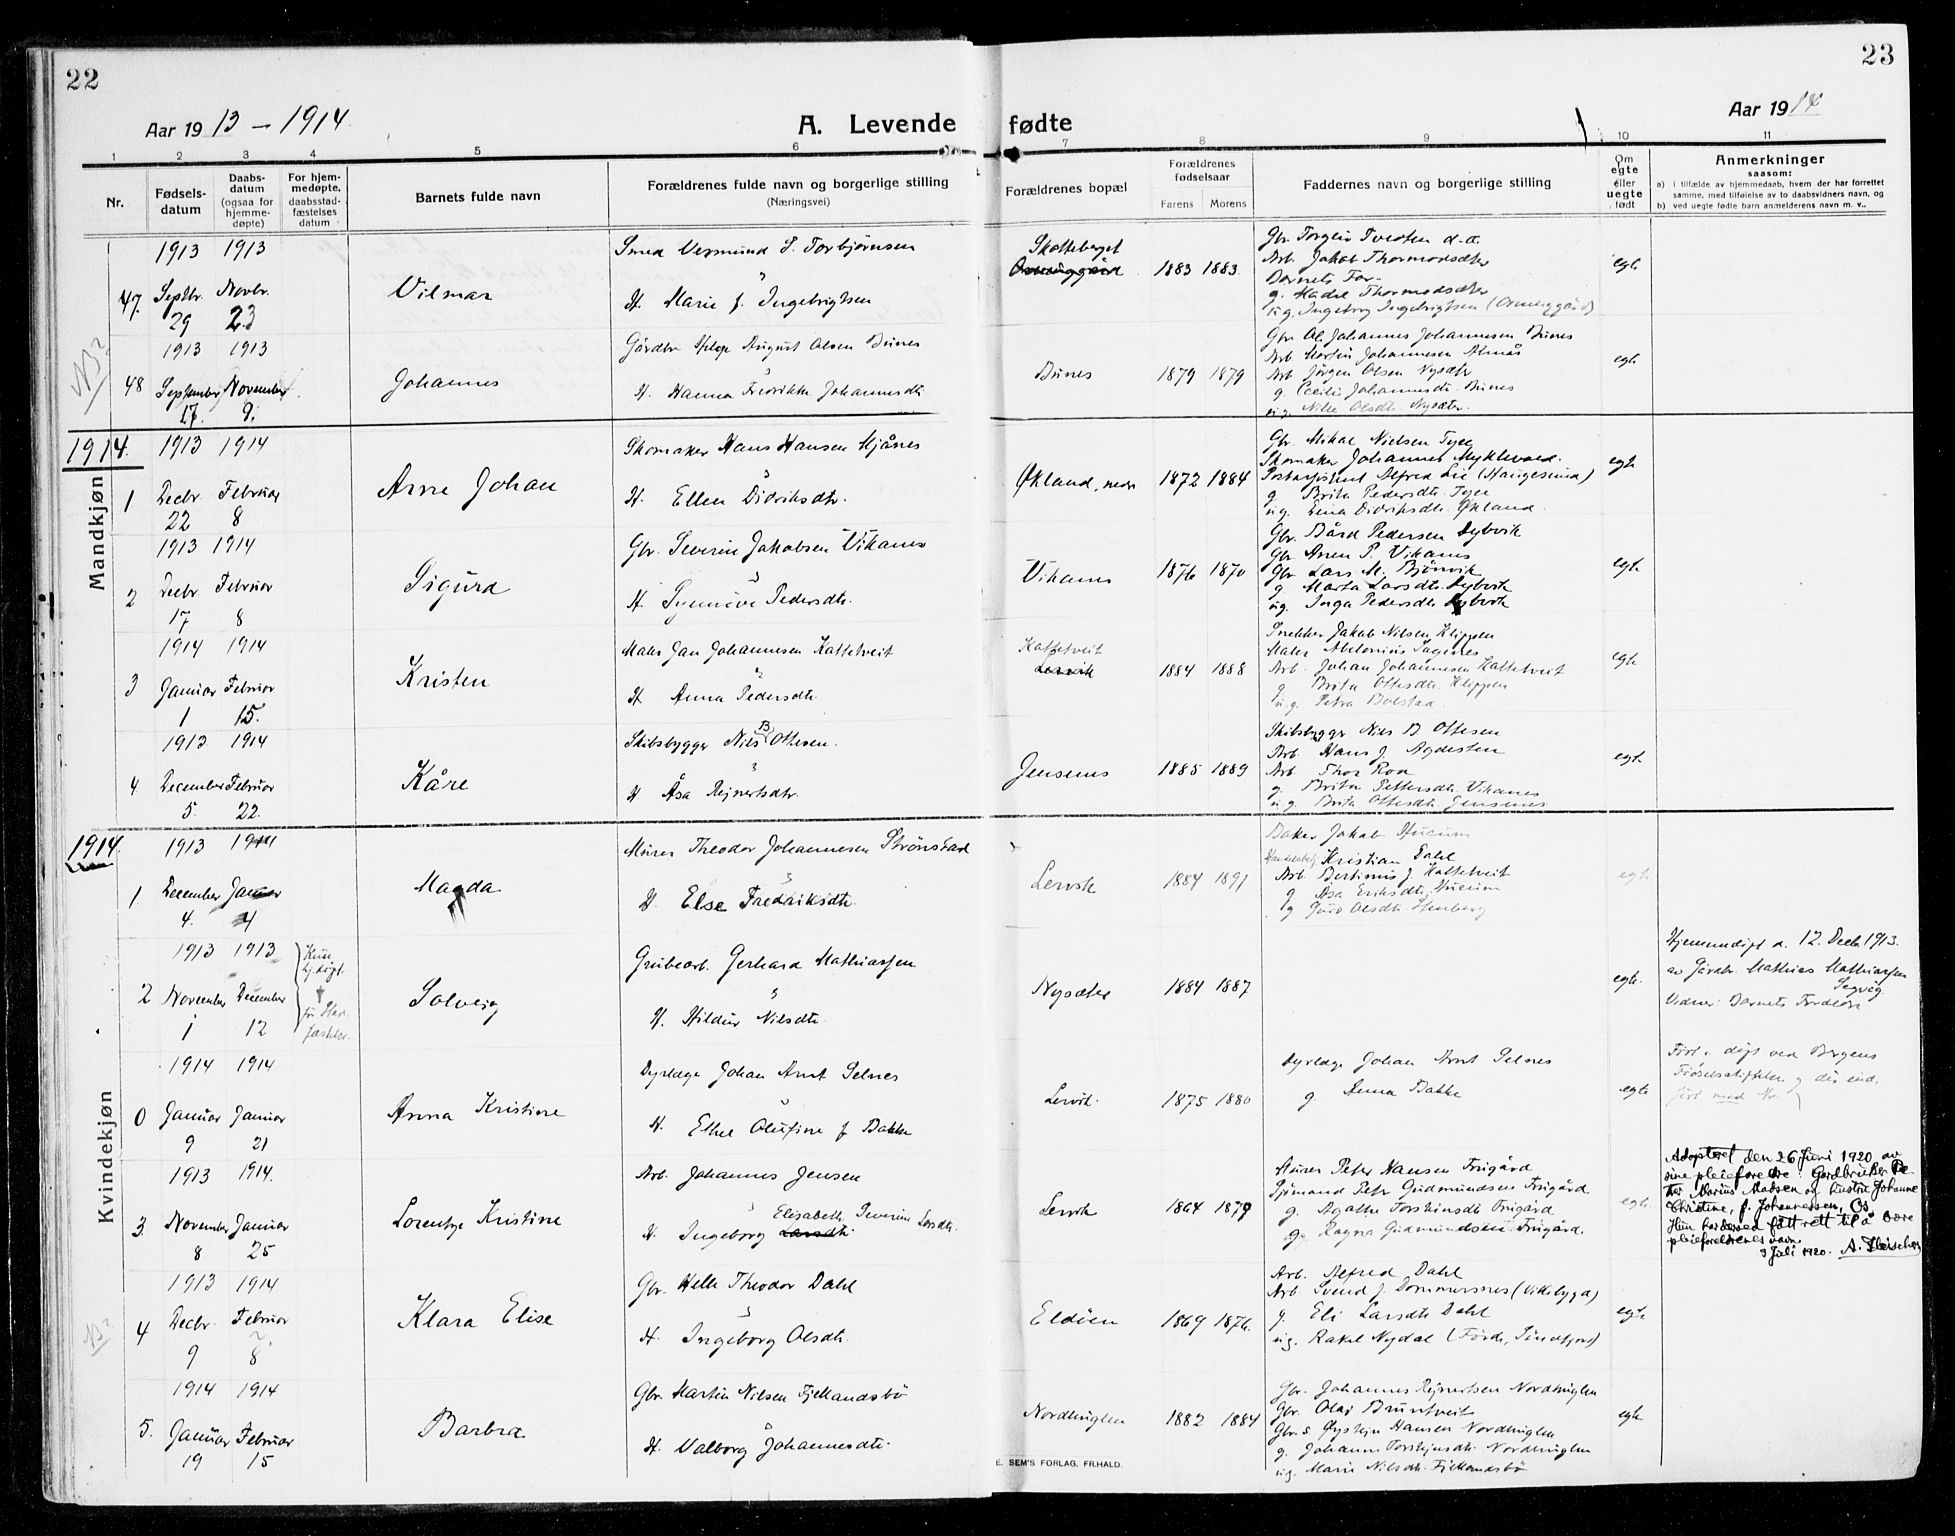 22
23
Aar 1913 – 1914
A. Levende fødte
Aar 1914
1 2 3 4 5 6 7 8 9 10 11
Nr.
Fødsels-datum
Daabs-datum (ogsaa for hjemme-døpte)
For hjem-medøpte, daabsstad-fæstelses datum
Barnets fulde navn
Forældrenes fulde navn og borgerlige stilling
(Næringsvei)
Forældrenes bopæl
Forældrenes fødselsaar
Farens Morens
Faddernes navn og borgerlige stilling
Om egte eller uegte født
Anmerkninger
saasom:
a) i tilfælde av hjemmedaab, hvem der har forrettet
samme, med tilføielse av to daabsvidners navn, og
b) ved uegte fødte barn anmelderens navn m. v..
47. 1913 Septbr. 29
1913 Novbr. 23
Vilmar
Smed Vermund S. Torbjørnsen
o
H. Marie f. Ingebrigtsen
Skotteberget
1883 1883
Arb. Jakob Thormodsæter
Barnets Far
ug. Ingeborg Ingebrigtsen
egte
NB?
48 1913 September 17.
1913 November 9.
Johannes
Gårdbr Helge August Olsen Bunes
H. Hanna Fredrikke Johannesdtr
Bunes
1879 1879
Gbr Ol. Johannes Johannesen Bunes
Arb Martin Johannesen Almås
Arb Jørgen Olsen Nysæter
g. Cecilie Johannesdtr. Bunes
ug. Nille Olsdtr Nysæter.
egte
1914.
Mandkjøn
1 1913 Decbr. 22
1914 Februar 8
Arne Johan
Skomaker Hans Hansen Mjånes
o
H. Ellen Didriksdtr.
Økland, nedr
1872 1884
Gbr. Mikal Nielsen Tyse
Skomaker Johannes Myklevold.
Alfred Lie (Haugesund)
g. Brita Pedersdtr. Tyse
ug. Lina Didriksdtr. Økland.
egte
2 1913 Decbr. 17
1914 Februar 8
Sigurd
Gbr. Severin Jakobsen Vikanes
o
H. Synneve Pedersdtr.
Vikanes
1876 1870
Gbr. Bård Pedersen Dybvik
Gbr Anen P. Vikanes
Gbr Lars M. Bjønvik
g. Marta Larsdtr. Dybvik
ug. Inga Pedersdtr. Dybvik
egte
3 1914 Januar 1
1914 Februar 15.
Kristen
Maler Jan Johannesen Kattetveit
o
H Anna Pedersdtr.
Kattetveit
Lervik
1884 1888
Snekker Jakob Nilsen Klippen
Maler Abelonius Sagenes
Arb. Johan Johannesen Kattetveit
g. Brita Ottesdtr. Klippen
ug. Petra Bolstad.
egte
4. 1913 December 5.
1914 Februar 22.
Kåre
Skibsbygger Nils B Ottesen.
o
H Åsa Rejnertsdtr.
Jensenes
1885 1889
Skibsbygger Nies B Ottesen
Arb. Hans J. Agdesten
Arb. Thor Roa
g. Brita Pettersdtr. Vikanes
ug. Brita Ottesdtr. Jensenes
egt.
1914.
Kvindekjøn
1 1913 December 4.
1914 Januar 4
Magda
Murer Theodor Johannesen Strønstad
o
H. Else Fredriksdtr.
Lervik
1884 1891
Baker Jakob Hucum
Kristian Dahl
Arb Bertinius J. Kattetveit
g Åsa Eriksdtr. Hucum
g Guro Olsdtr. Stenberg
egte
2 1913 November 1
1913 December 12
Kun hj.døpt. † før Stadfæstelse.
Solveig
Grubearb. Gerhard Mathiassen
o
H. Hildur Nilsdtr.
Nysæter
1884 1887
egte.
Hjemmedøpt d. 12. Decbr 1913.
av Gårdbr. Mathias Mathiassen
Vidner: Barnets Forældre
0 1914 Januar 9
1914 Januar 21
Anna Kristine
Dyrlæge Johan Arnt Selnes
o
H. Ethel Olufine f Bakke
Lervik.
1875 1880
Dyrlæge Johan Arnt Selnes
g. Anna Bakke
egte
Født & døpt ved Bergens
Fødselsstiftelse og der ind-
ført med No
3. 1913 November 8
1914. Januar 25
Lorentse Kristine
Arb. Johannes Jensen
Elisabeth Severine Larsdtr.
H. Ingeborg Larsdtr.
Lervik
1864 1879
Murer Peter Hansen Frugård
Sjømand Petr Gudmundsen Frugård
g. Agathe Torstinsdtr Frugård
g. Ragna Gudmundsen Frugård.
egte
Adopteret den 26 Juni 1920 av
sine pleieforeldre: Gardbruker Pe-
ter Marius Madsen og hustru Johanne
Christine, f. Johannessen, Os.
Hun har derved fått rett til å bære
pleieforeldrenes navn.
9 Juli 1920. A. Fleischer
NB?
4 1913 Decbr. 9
1914 Februar 8
Klara Elise
Gbr. Helle Theodor Dahl
o
H. Ingeborg Olsdtr.
Eldöen
1869 1876.
Arb. Alfred Dahl
Arb. Svend J. Dommersnes (Vikebygd)
g. Eli Larsdtr Dahl
ug. Rakel Nydal (Førde, Søndfjord)
egte
5. 1914 Januar 19
1914 Februar 15
Barbra
Gbr. Martin Nilsen Fjellandsbø
o
H. Valborg Johannesdtr.
Nordhuglen
1882 1884
Gbr. Johannes Rejnertsen Nordhuglen
Gbr. Olai Bruntveit
Gbr.s. Øystejn Hansen Nordhuglen
g. Johanne Torstejnsdtr. Nordhuglen
ug. Marie Nilsdtr. Fjellandsbø
egte
E. SEM'S FORLAG, FR.HALD.